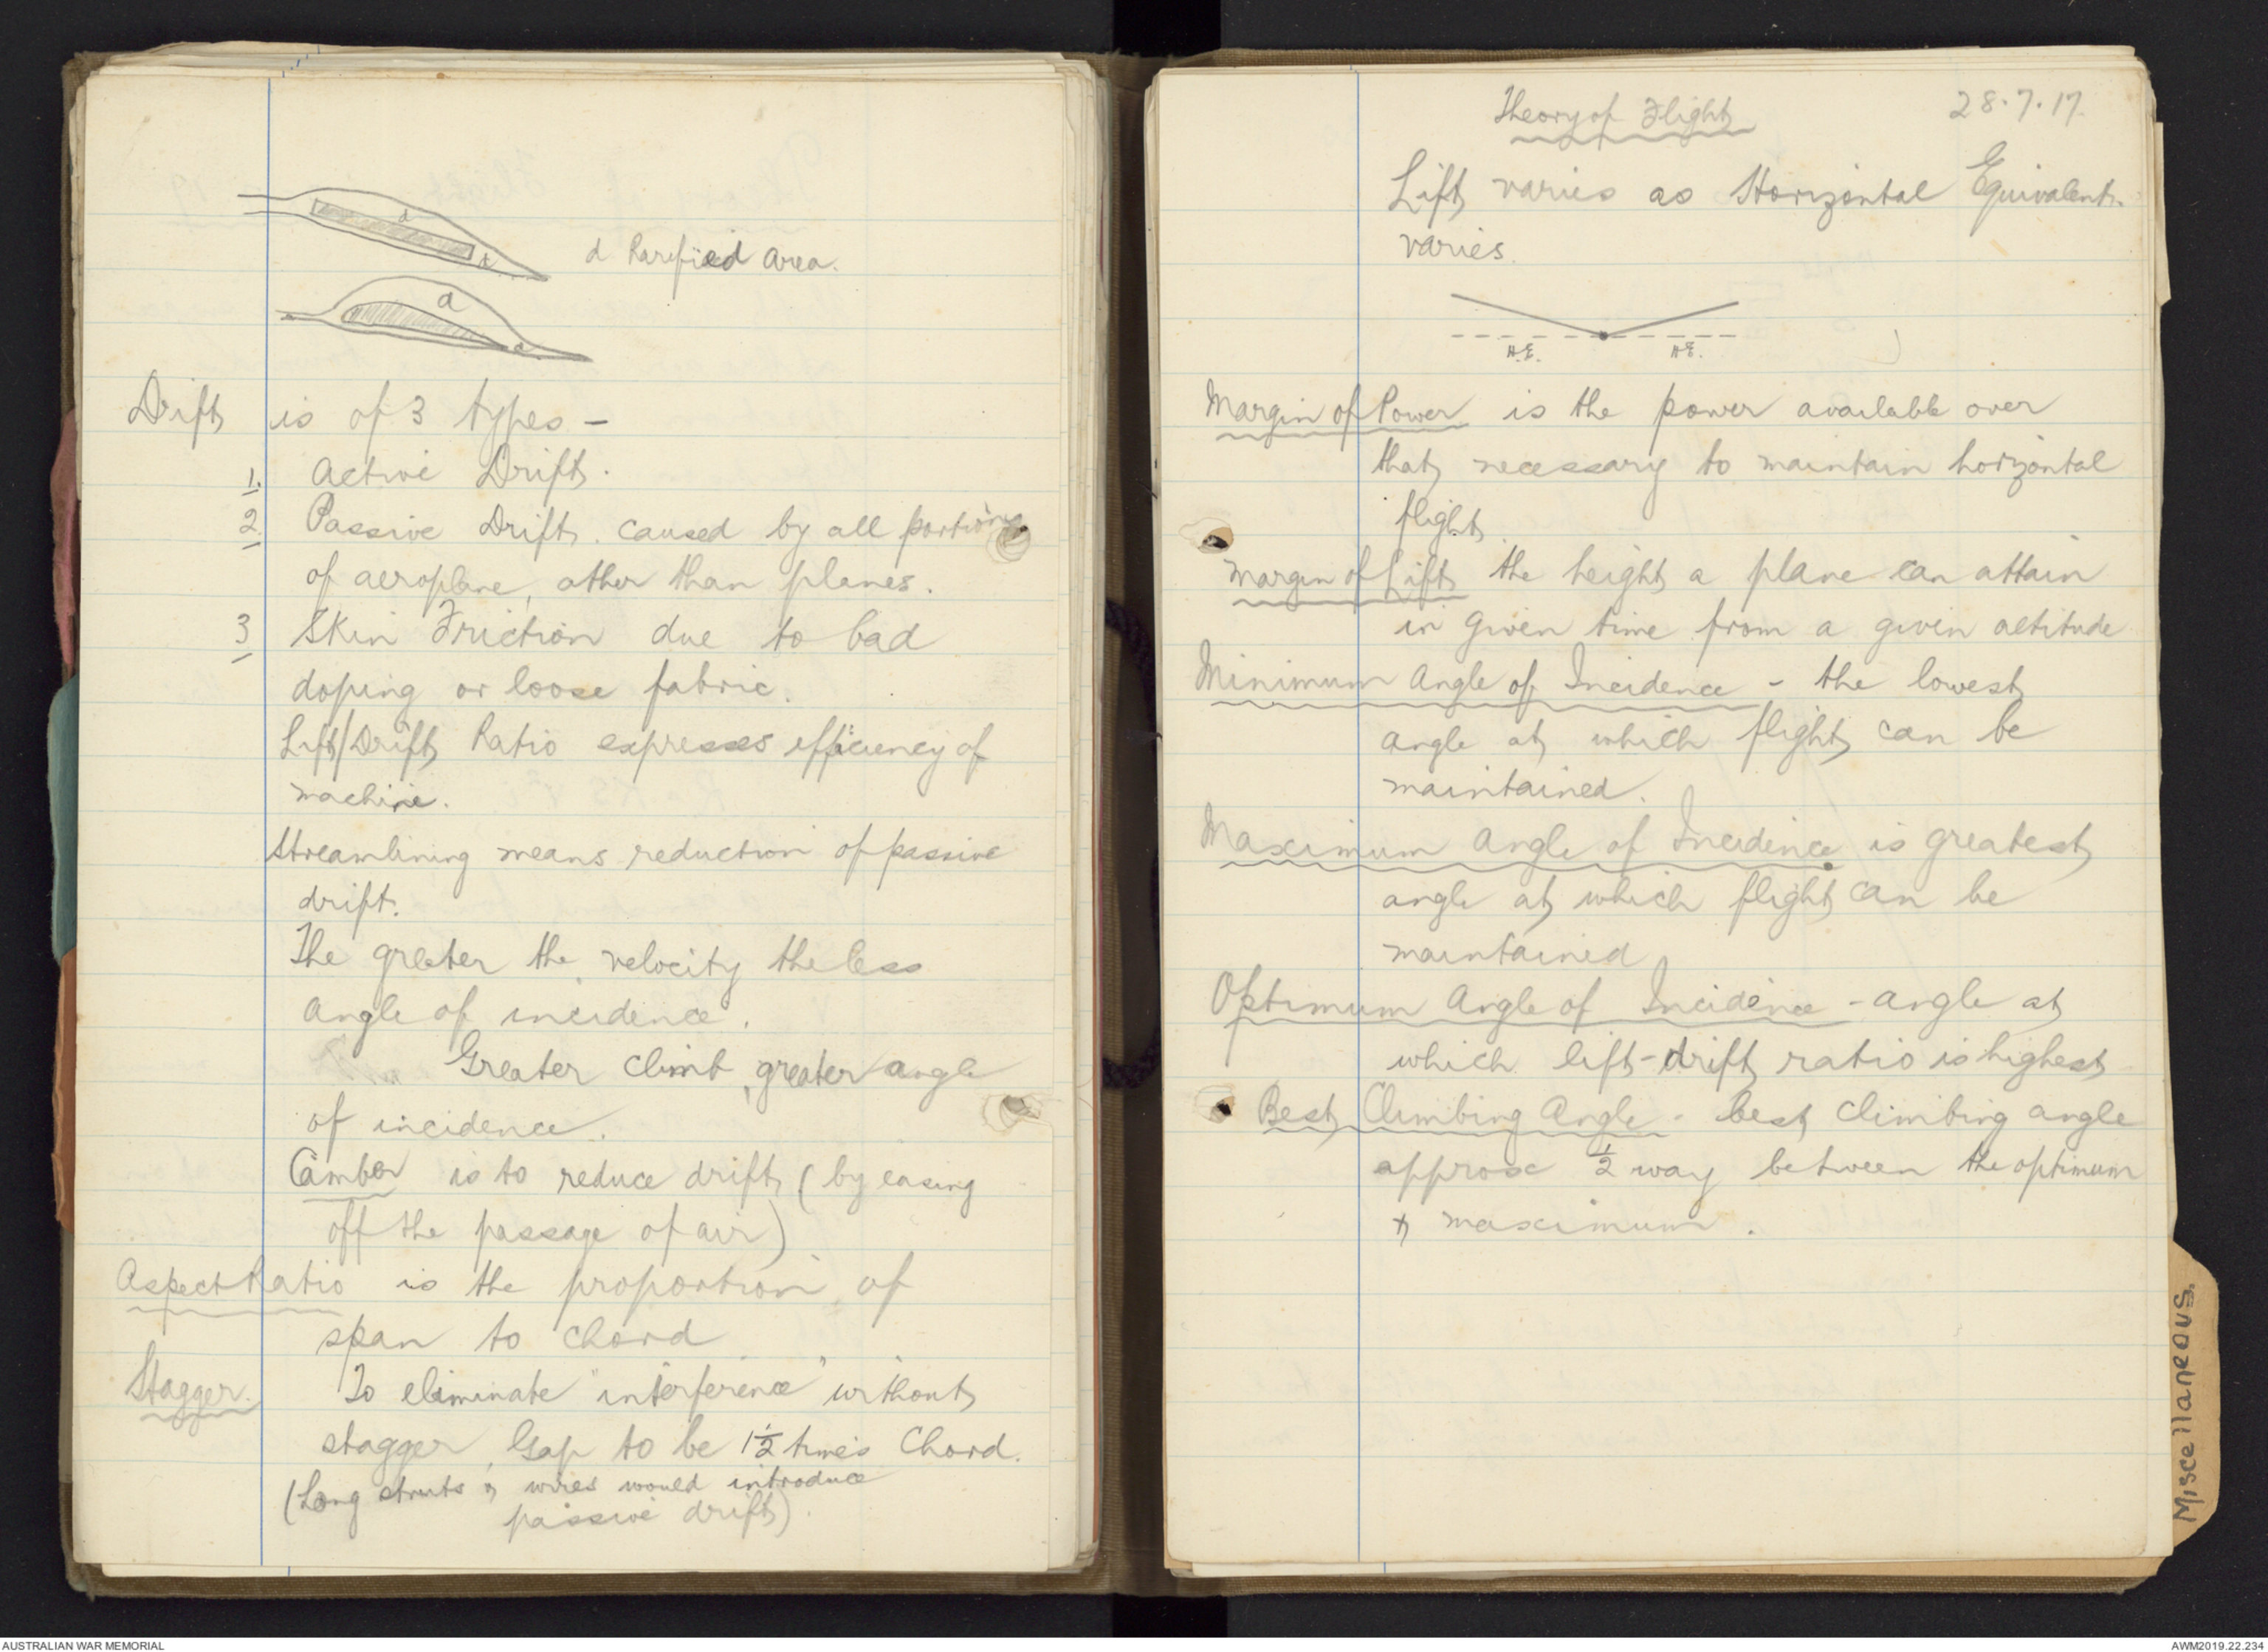 d
d
d Rarified Area.
d
d
Drift is of 3 types -
1. Active Drift.
2 Passive Drift. caused by all portions
of aeroplane, other than planes.
3 Skin Friction due to bad
doping or loose fabric.
Lift/Drift Ratio expresses efficiency of
machine.
Streamlining means reduction of passive
drift.
The greater the velocity the less
angle of incidence.
Greater climb, greater angle
of incidence.
Camber is to reduce drift (by easing
off the passage of air)
Aspect Ratio is the proportion of
span to chord
Stagger. To eliminate "interference" without
stagger, Gap to be 1½ times Chord.
(Long struts & wires would introduce
passive drift).
Theory of Flight 28.7.17.
Lift varies as Horizontal Equivalent.
varies.
H.E. H.E.
Margin of Power is the power available over
that necessary to maintain horizontal
flight
Margin of Lift the height a plane can attain
in given time from a given altitude
Minimum Angle of Incidence - the lowest
angle at which flight can be
maintained.
Maximum Angle of Incidence is greatest
angle at which flight can be
maintained
Optimum Angle of Incidence - angle at
which lift-drift ratio is highest
Best Climbing Angle - best climbing angle
approx ½ way between the optimum
& maximum.
Miscellaneous.
AUSTRALIAN WAR MEMORIAL
AWM2019.22.234